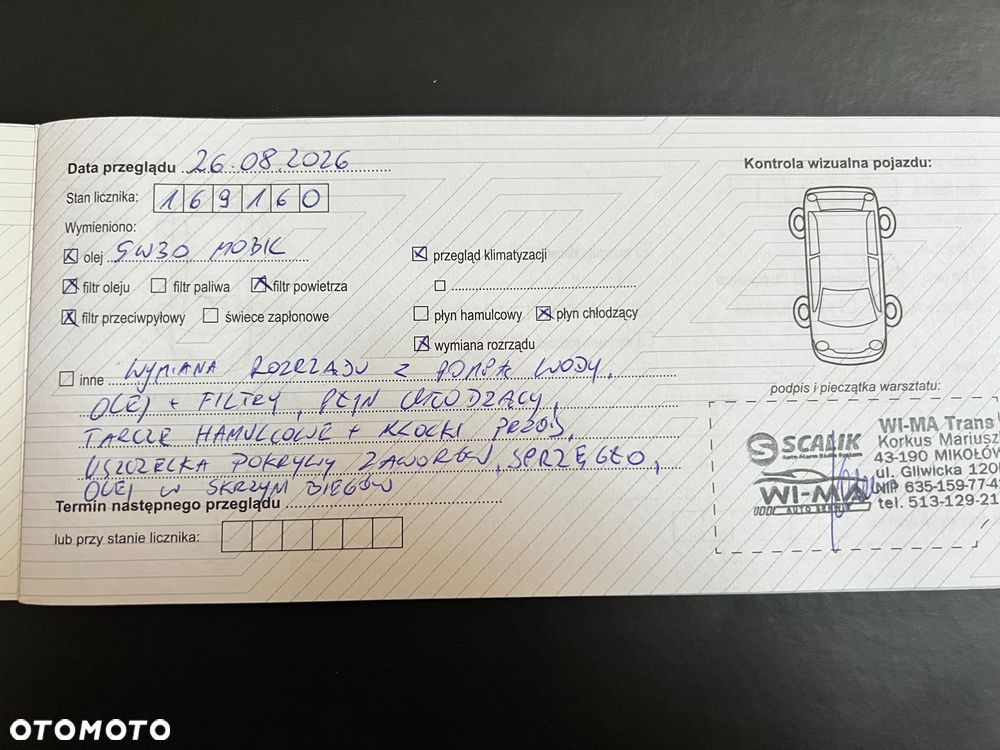 Data przeglądu 26.08.2026
Kontrola wizualna pojazdu:
Stan licznika: 169160
Wymieniono:
olej 5W30 MOBIL
przegląd klimatyzacji
filtr oleju filtr paliwa filtr powietrza
filtr przeciwpyłowy świece zapłonowe
płyn hamulcowy płyn chłodzący
wymiana rozrządu
inne WYMIANA ROZRZĄDU Z POMPĄ WODY,
OLEJ + FILTRY, PŁYN CHŁODZĄCY,
TARCZE HAMULCOWE + KLOCKI PRZÓD,
USZCZELKA POKRYWY ZAWORÓW, SPRZĘGŁO,
OLEJ W SKRZYNI BIEGÓW
Termin następnego przeglądu
lub przy stanie licznika:
podpis i pieczątka warsztatu:
SCALIK
WI-MA
AUTO SERWIS
WI-MA Trans
Korkus Mariusz
43-190 MIKOŁÓW
ul. Gliwicka 120
NIP 635-159-77-4
tel. 513-129-21
OTOMOTO